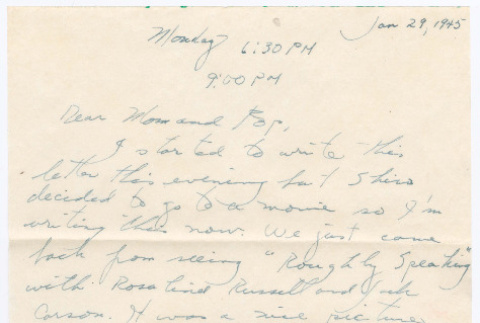 Jan 29, 1945
Monday 6:30 PM
9:00 PM
Dear Mom and Pop,
I started to write this
letter this evening but Shiro
decided to go to a movie so I'm
writing this now. We just came
back from seeing "Roughly Speaking"
with Rosalind Russell and Jack
Carson. It was a nice picture